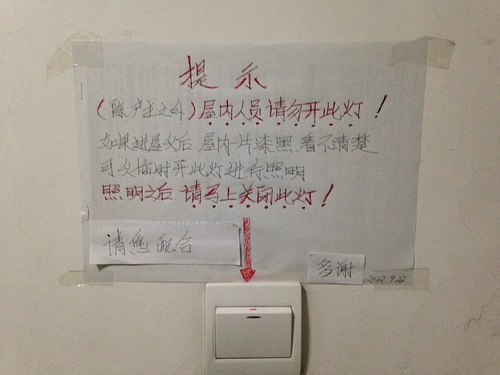 提示
(除户主之外)屋内人员请勿开此灯!
如果进屋以后 屋内一片漆黑 看不清楚
可以临时开此灯进行照明
照明之后 请马上关闭此灯!
请您配合
多谢
2012.9.22